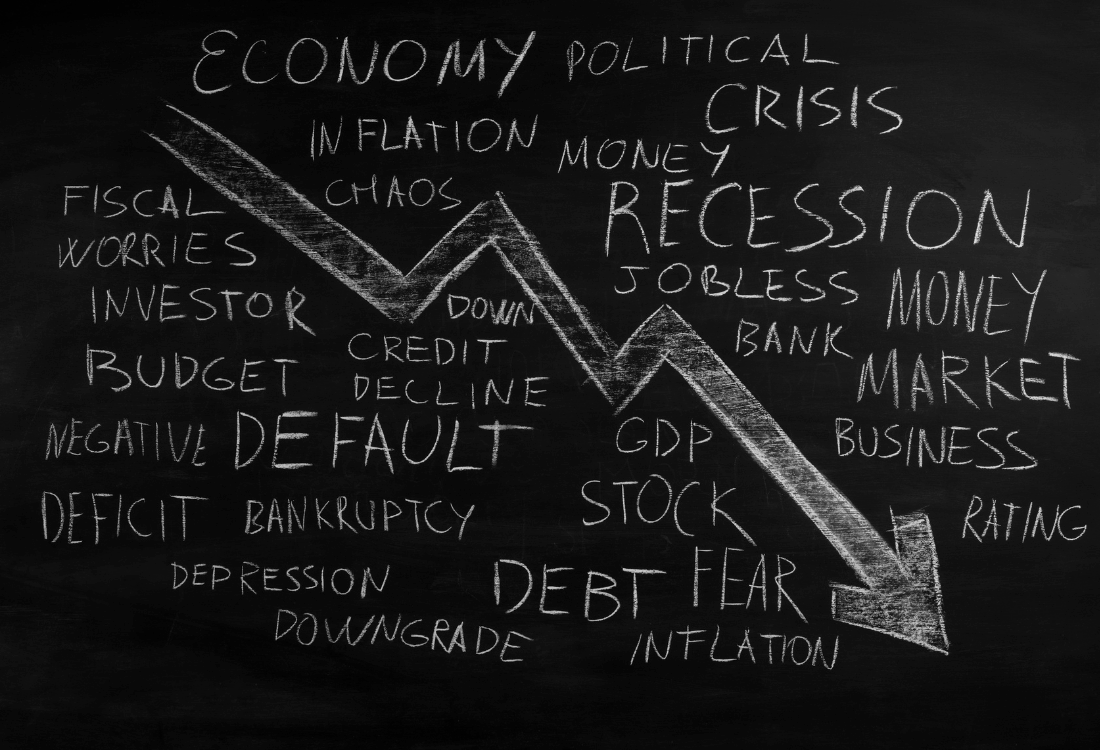 ECONOMY POLITICAL
CRISIS
INFLATION
MONEY
CHAOS
RECESSION
FISCAL
WORRIES
JOBLESS
MONEY
INVESTOR
DOWN
BANK
CREDIT
DECLINE
BUDGET
MARKET
NEGATIVE DEFAULT
GDP
BUSINESS
DEFICIT BANKRUPTCY
STOCK
RATING
DEPRESSION
DEBT FEAR
DOWNGRADE
INFLATION